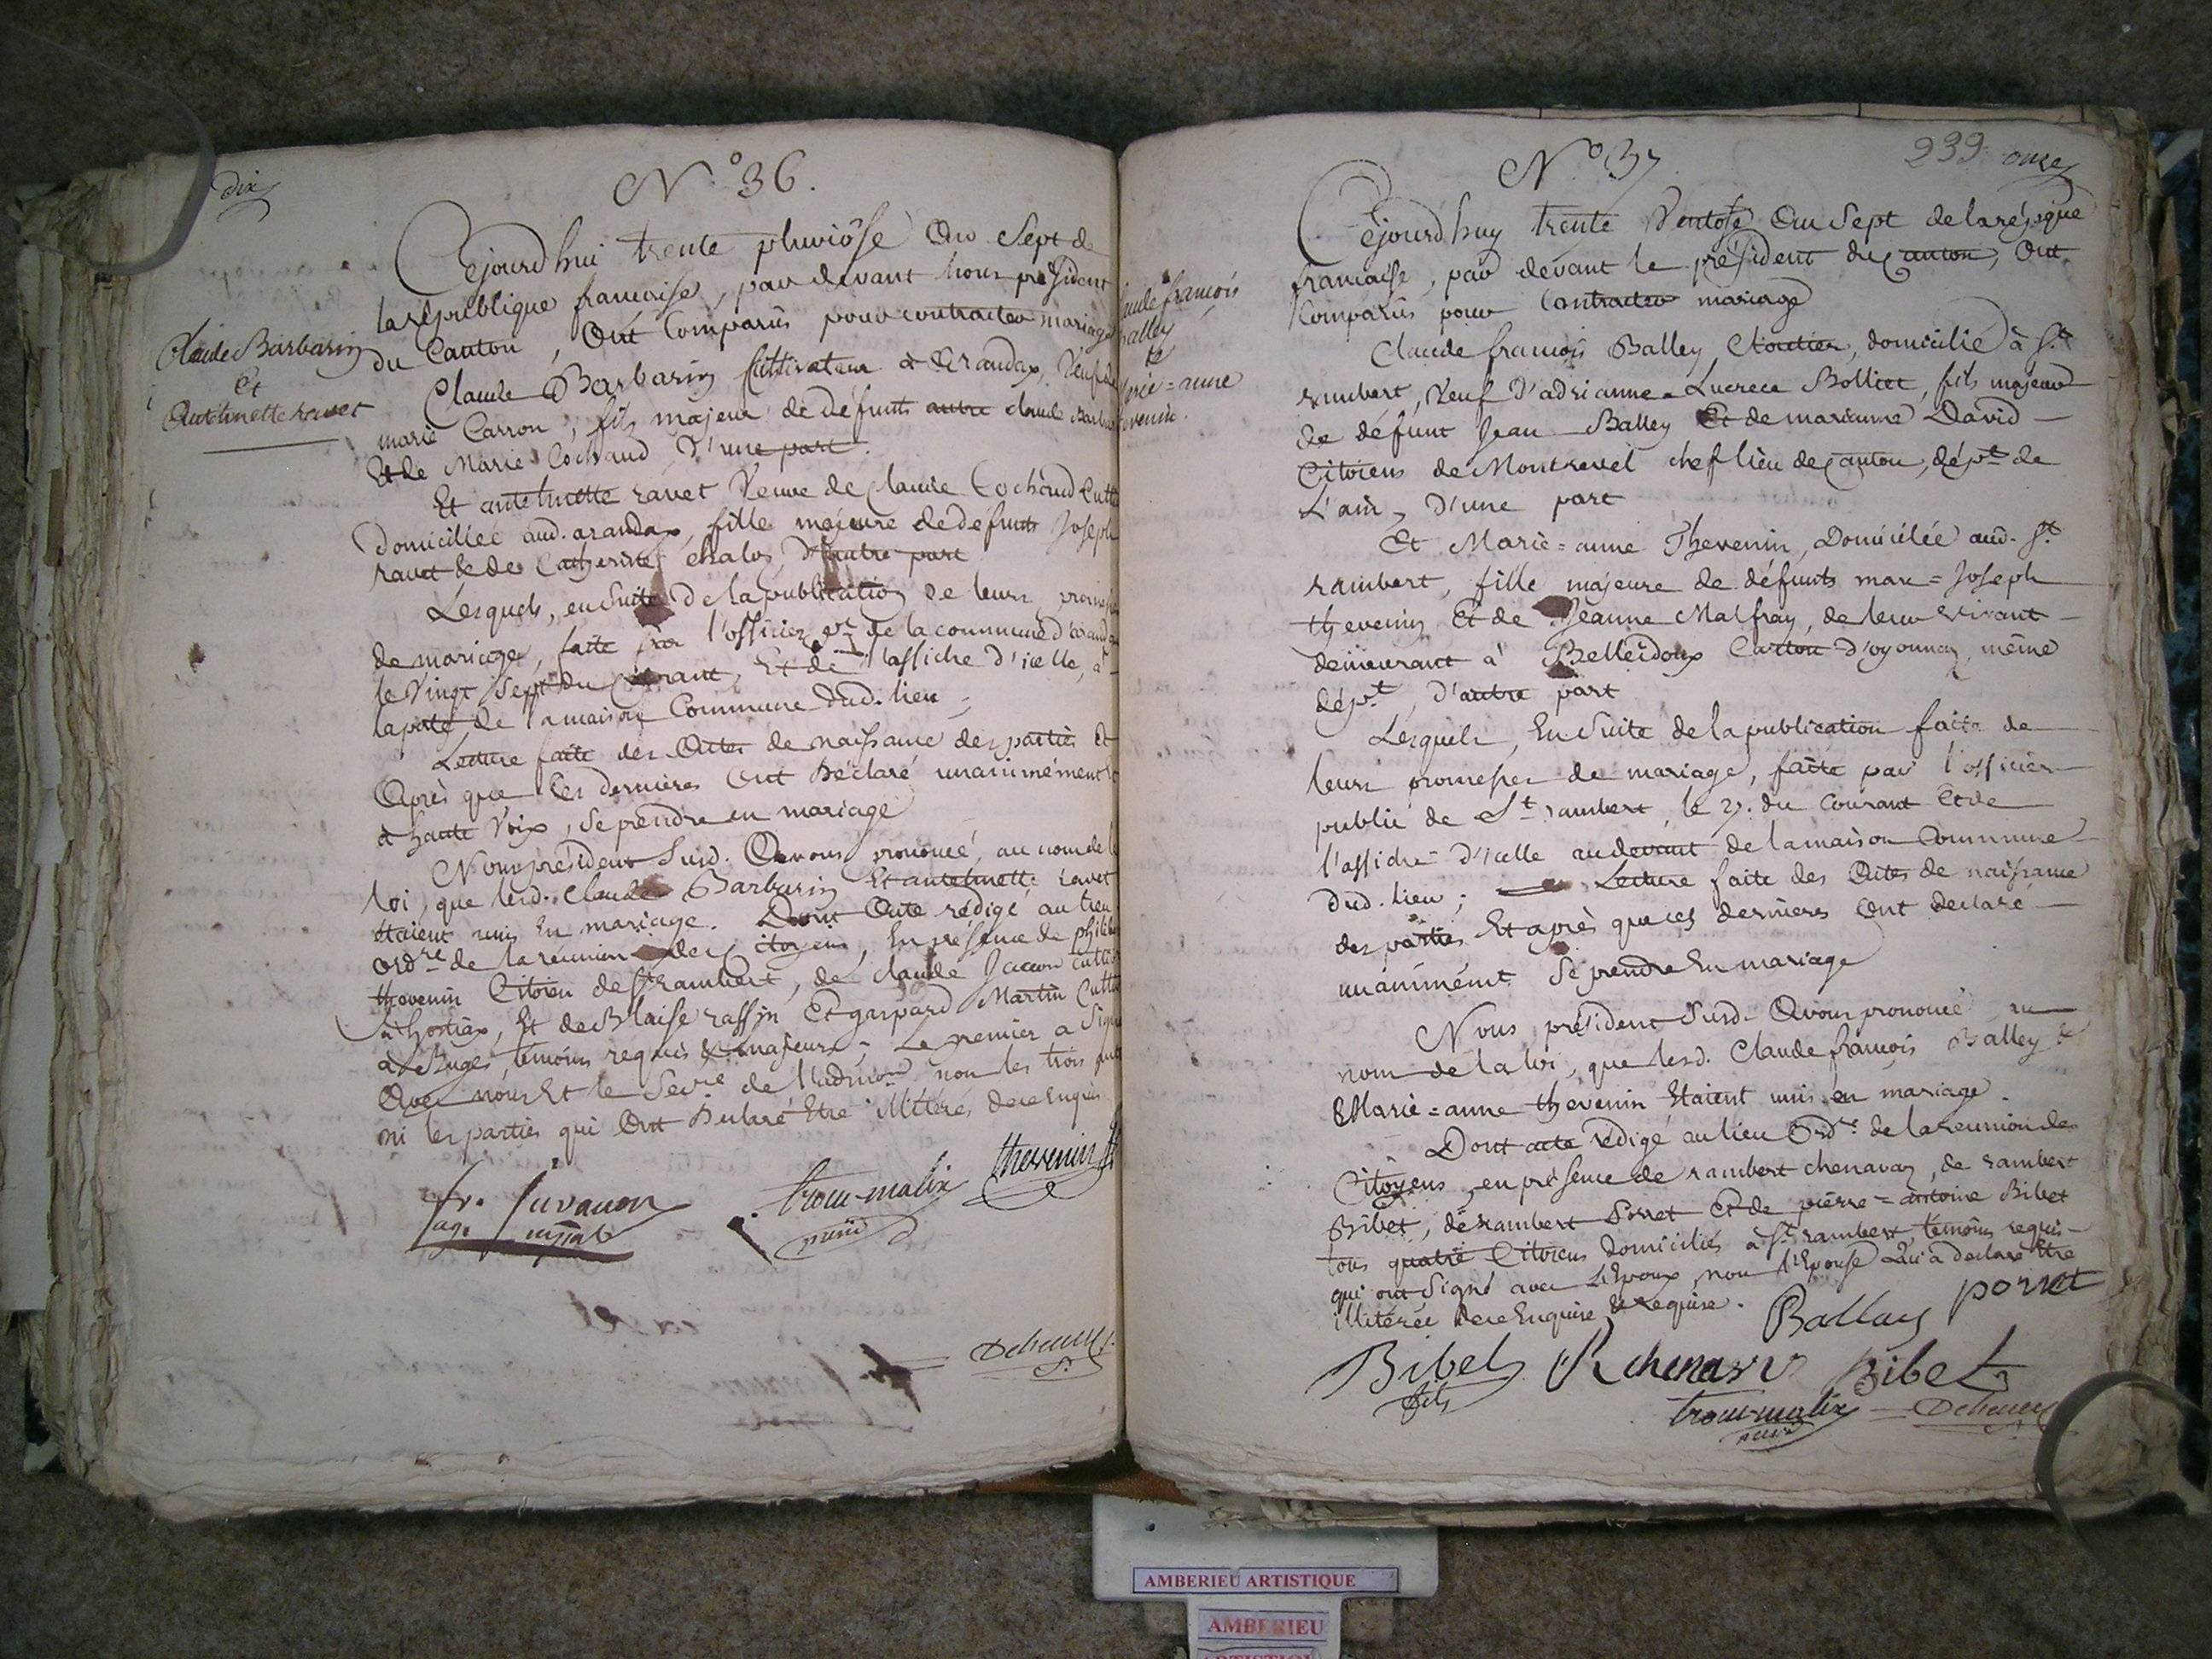 dix
N.° 36.
Cejourd'hui trente pluviôse An Sept de
la république françoise, par devant Nous président
du Canton, Ont Comparûs pour contracter mariage
Claude Barbarin
Et
Antelmette ravet
Claude Barbarin Cultivateur à Arandax, Veuf de
marie Carron, fils majeur de défunts autre claude Barba
Et de Marie Cochaud, D'une part.
Et antelmette ravet Veuve de Claude Cochaud Cult
domiciliée aud. arandax, fille majeure de défunts Joseph
ravet & de Catherine chalos, d'autre part
Lesquels, en Suite De la publication de leurs promesses
de mariage, faite par l'officier p.er de la commune d'arand
le Vingt Sept du Courant, Et de l'affiche d'icelle, à
la porte de la maison Commune dud. lieu
Lecture faite des Actes de naissance des parties Et
Après que Ces dernieres Ont Déclaré unanimément Et
à haute Voix, Se prendre en mariage
Nous président Susd. Avons prononcé, au nom de la
loi, que lesd. Claude Barbarin Et antelmette ravet
étaient unis En mariage. Dont Acte rédigé au lieu
Ord.re de la réunion des citoyens, En présence de philib
thevenin Citoien de St. rambert, de Claude Jacon Culti
à hostiax, Et de Blaise raffin Et gaspard Martin Culti
témoins requis & majeurs; Le premier a Signé
Avec nous Et le Sec.re de l'adm.on non les trois
ni les parties qui Ont Déclaré Etre illitérés de ce Enquis
thevenin
trocu-malix
présid
fr. juvanon
ag. mpal
Deheur
S.
N.° 37
239 onze
Claude françois
Balley
&
Marie=anne
thevenin.
Cejourd'huy trente Ventose An Sept de la rép.que
francaise, par devant le président du Canton, Ont
Comparûs pour Contracter mariage
Claude francois Balley Cloutier, domicilié à St.
rambert, Veuf d'adrianne=Lucrece Bolliet, fils majeur
de défunt Jean Balley Et de marianne David
Citoiens de Montrevel chef lieu de Canton, dép.t de
L'ain, D'une part
Et Marie=anne Thevenin, Domiciliée aud. St.
rambert, fille majeure de défunts marc=Joseph
thevenin Et de Jeanne Malfray, de leur vivant
demeurant à Belleidoux Canton d'oyonnax, même
dép.t, d'autre part
Lesquels, En Suite de la publication faite de
leurs promesses de mariage, faite par l'officier
public de St. rambert, le 27. du Courant Et de
l'affiche d'icelle au devant de la maison Commune
Dud. lieu; Lecture faite des Actes de naissance
des parties Et après que ces dernieres Ont declaré
unânimément Se prendre En mariage
Nous président Susd. Avons prononcé au
nom de la loi, que lesd. Claude françois Balley &
Marie=anne thevenin Etaient unis en mariage.
Dont acte rédigé au lieu Ord.re de la reunion des
Citoyens, en présence de rambert chenavaz, de rambert
Bibet, de rambert Porret Et de pierre=antoine Bibet
tous quatre Citoiens Domiciliés à St. rambert, témoins requis
qui ont Signé avec L'Epoux, non L'Epouse qui a déclaré Etre
illitérée de ce Enquise & requise.
Ballay porret
Bibet R chenava Bibet
fils
trocu-malix Deheur
présid
AMBERIEU ARTISTIQUE
AMBERIEU
ARTISTIQUE